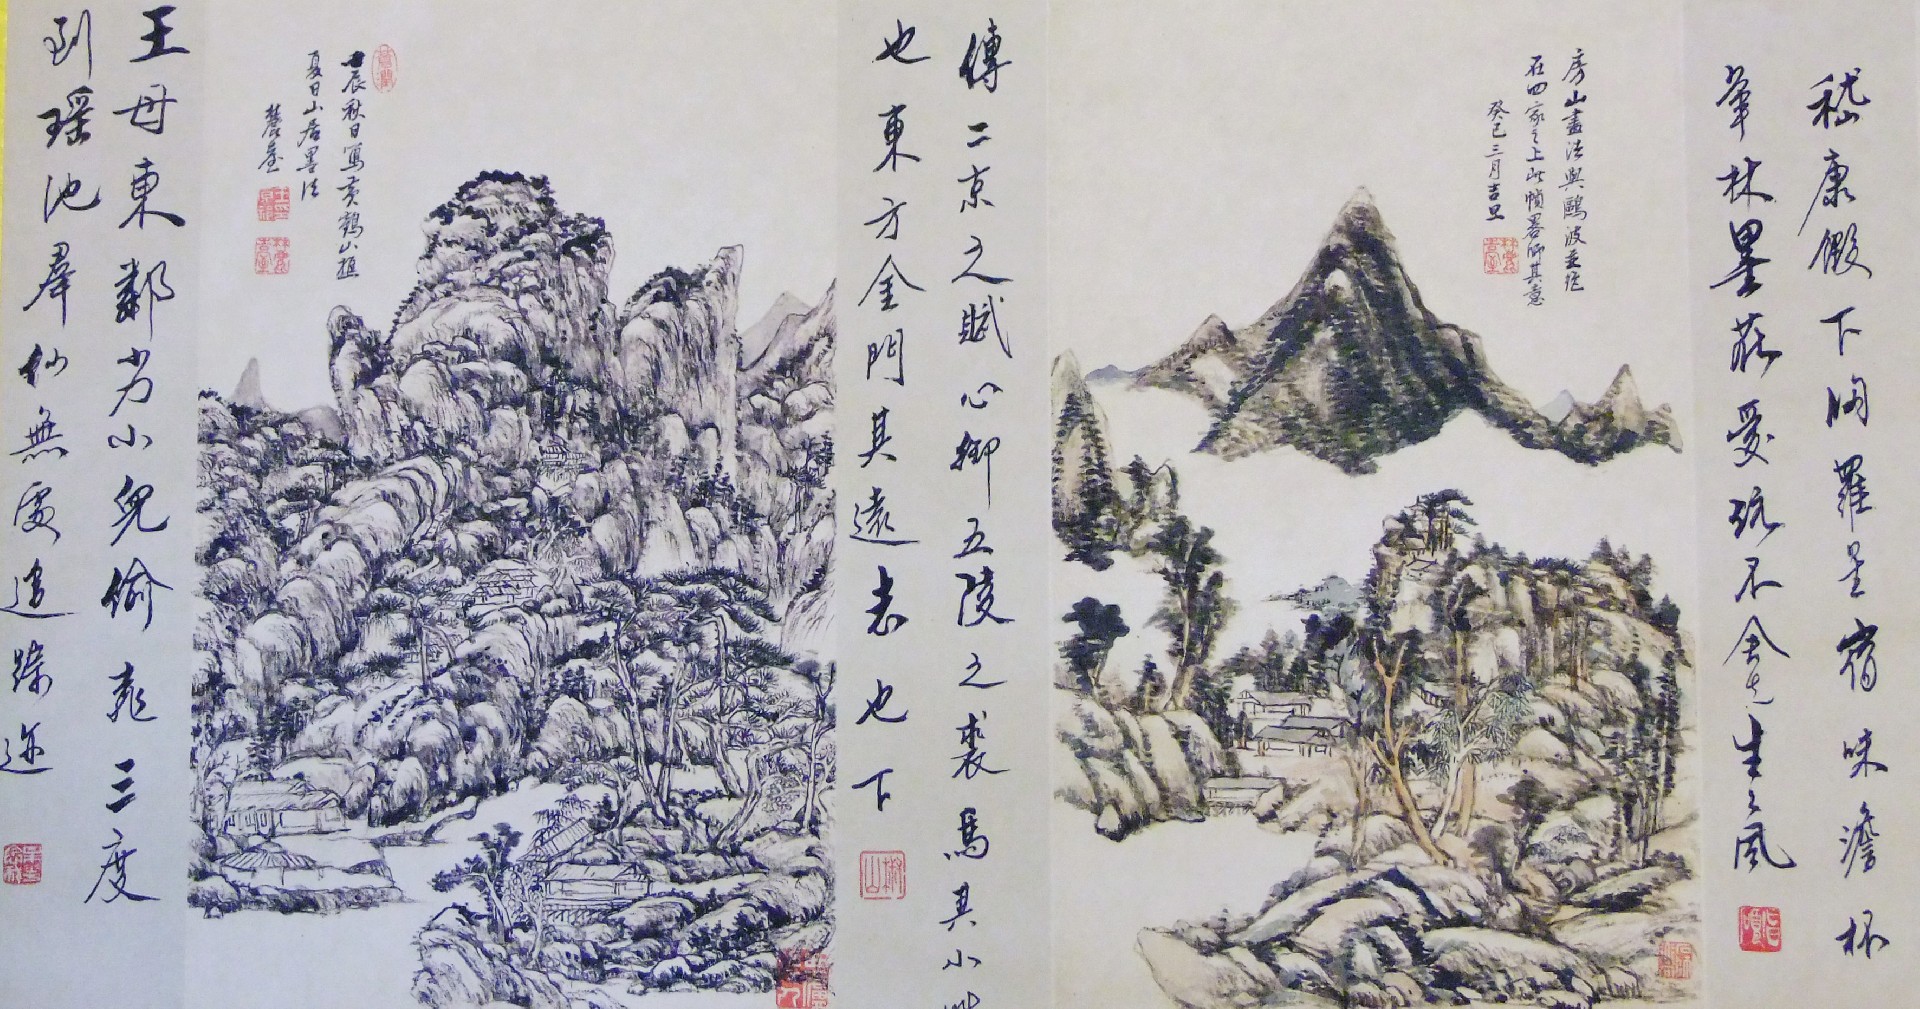 嵇康假下
羅星宿味澹杯
筆林墨莊愛玩不舍先生之風
房山畫法與鷗波並絕
在四家之上此幀畧師其意
癸巳三月吉旦
傳二京之賦心鄉五陵之裘馬其小
也東方金門其遠志也下
壬辰秋日寫黃鶴山樵
夏日山居墨法
麓臺
王母東鄰劣小兒偷桃三度
到瑶池羣仙無處追踪迹